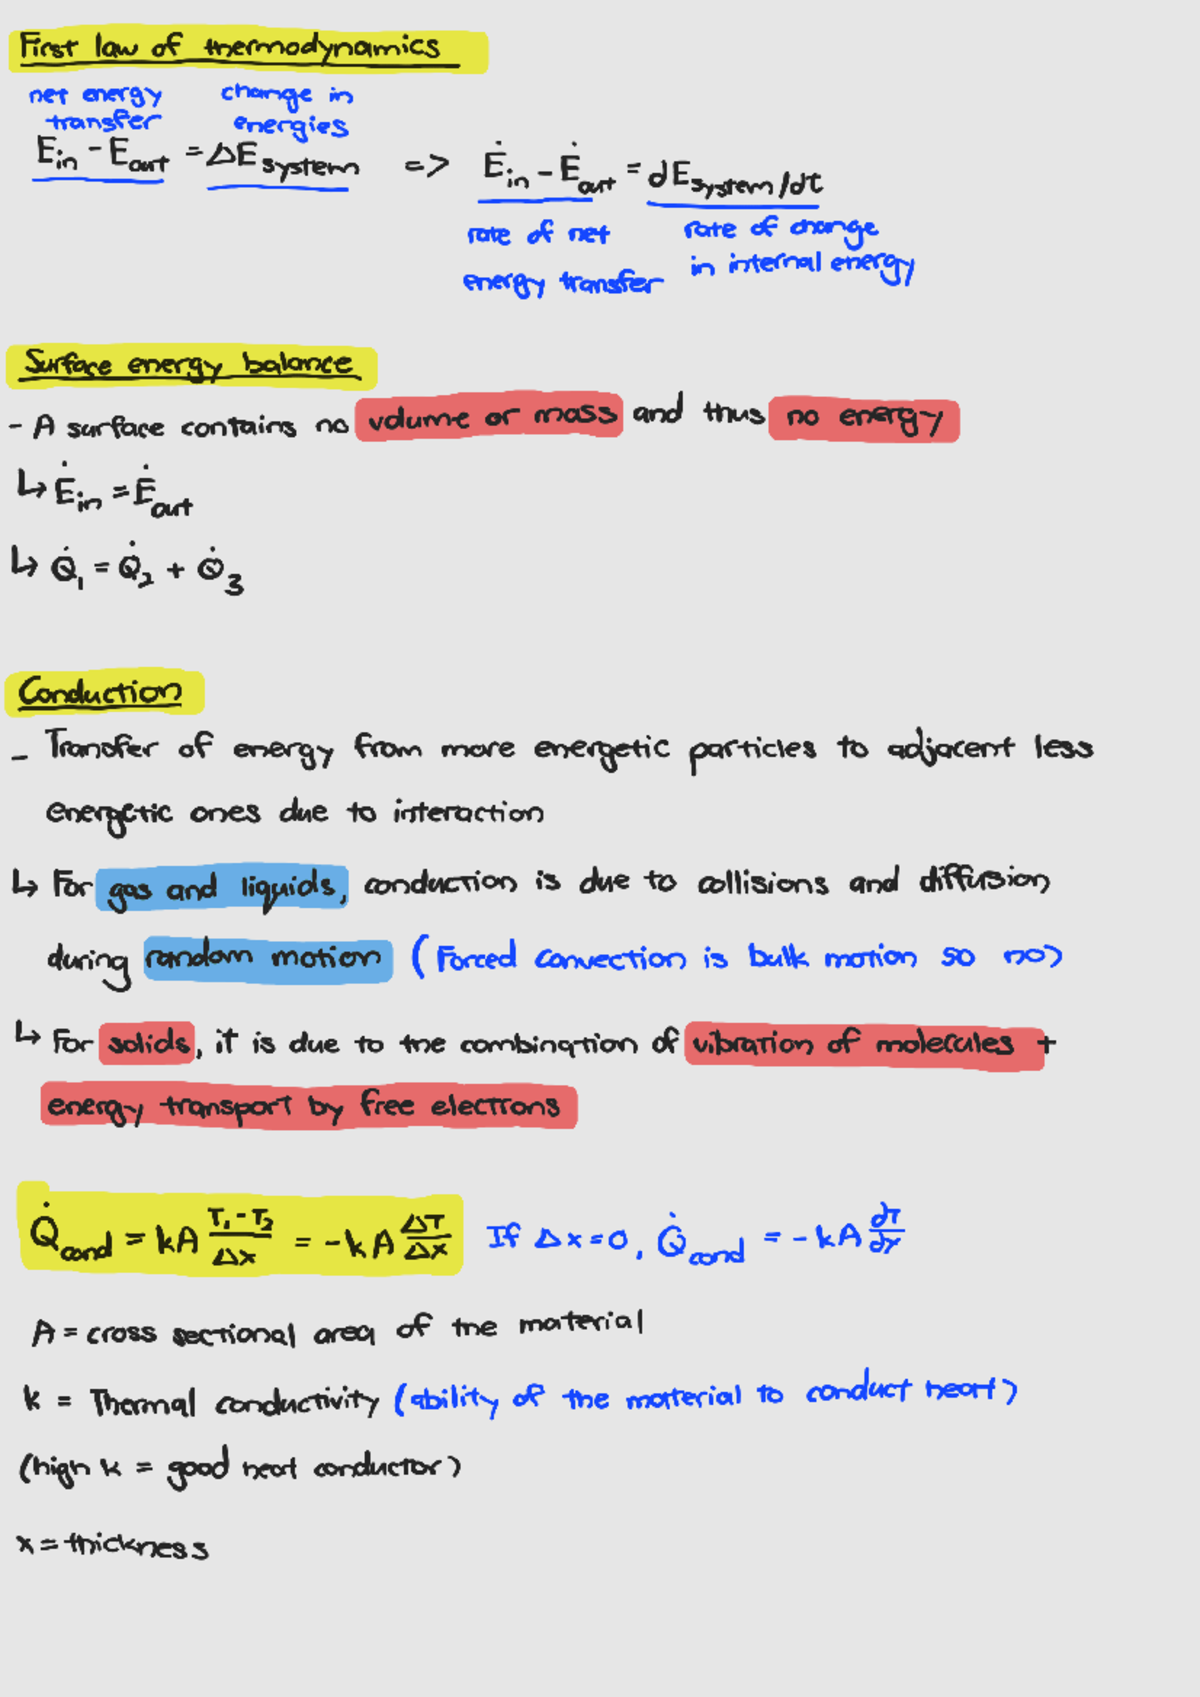 First law of thermodynamics
net energy transfer change in energies
E_in - E_out = ΔE_system => Ė_in - Ė_out = dE_system/dt
rate of net energy transfer rate of change in internal energy
Surface energy balance
- A surface contains no volume or mass and thus no energy
↳ Ė_in = Ė_out
↳ Q̇_1 = Q̇_2 + Q̇_3
Conduction
- Transfer of energy from more energetic particles to adjacent less
energetic ones due to interaction
↳ For gas and liquids, conduction is due to collisions and diffusion
during random motion (Forced convection is bulk motion so no)
↳ For solids, it is due to the combination of vibration of molecules +
energy transport by free electrons
Q̇_cond = kA (T_1 - T_2)/Δx = -kA ΔT/Δx If Δx=0, Q̇_cond = -kA dT/dx
A = cross sectional area of the material
k = Thermal conductivity (ability of the material to conduct heat)
(high k = good heat conductor)
x = thickness